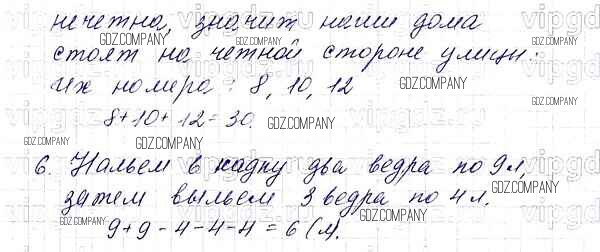 нечетна, значит наши дома
стоят на четной стороне улицы.
Их номера: 8, 10, 12
8+10+12=30.
6. Нальем в кадку два ведра по 9л,
затем выльем 3 ведра по 4л.
9+9-4-4-4=6 (л).
GDZ.COMPANY
GDZ.COMPANY
GDZ.COMPANY
GDZ.COMPANY
GDZ.COMPANY
GDZ.COMPANY
GDZ.COMPANY
GDZ.COMPANY
GDZ.COMPANY
GDZ.COMPANY
GDZ.COMPANY